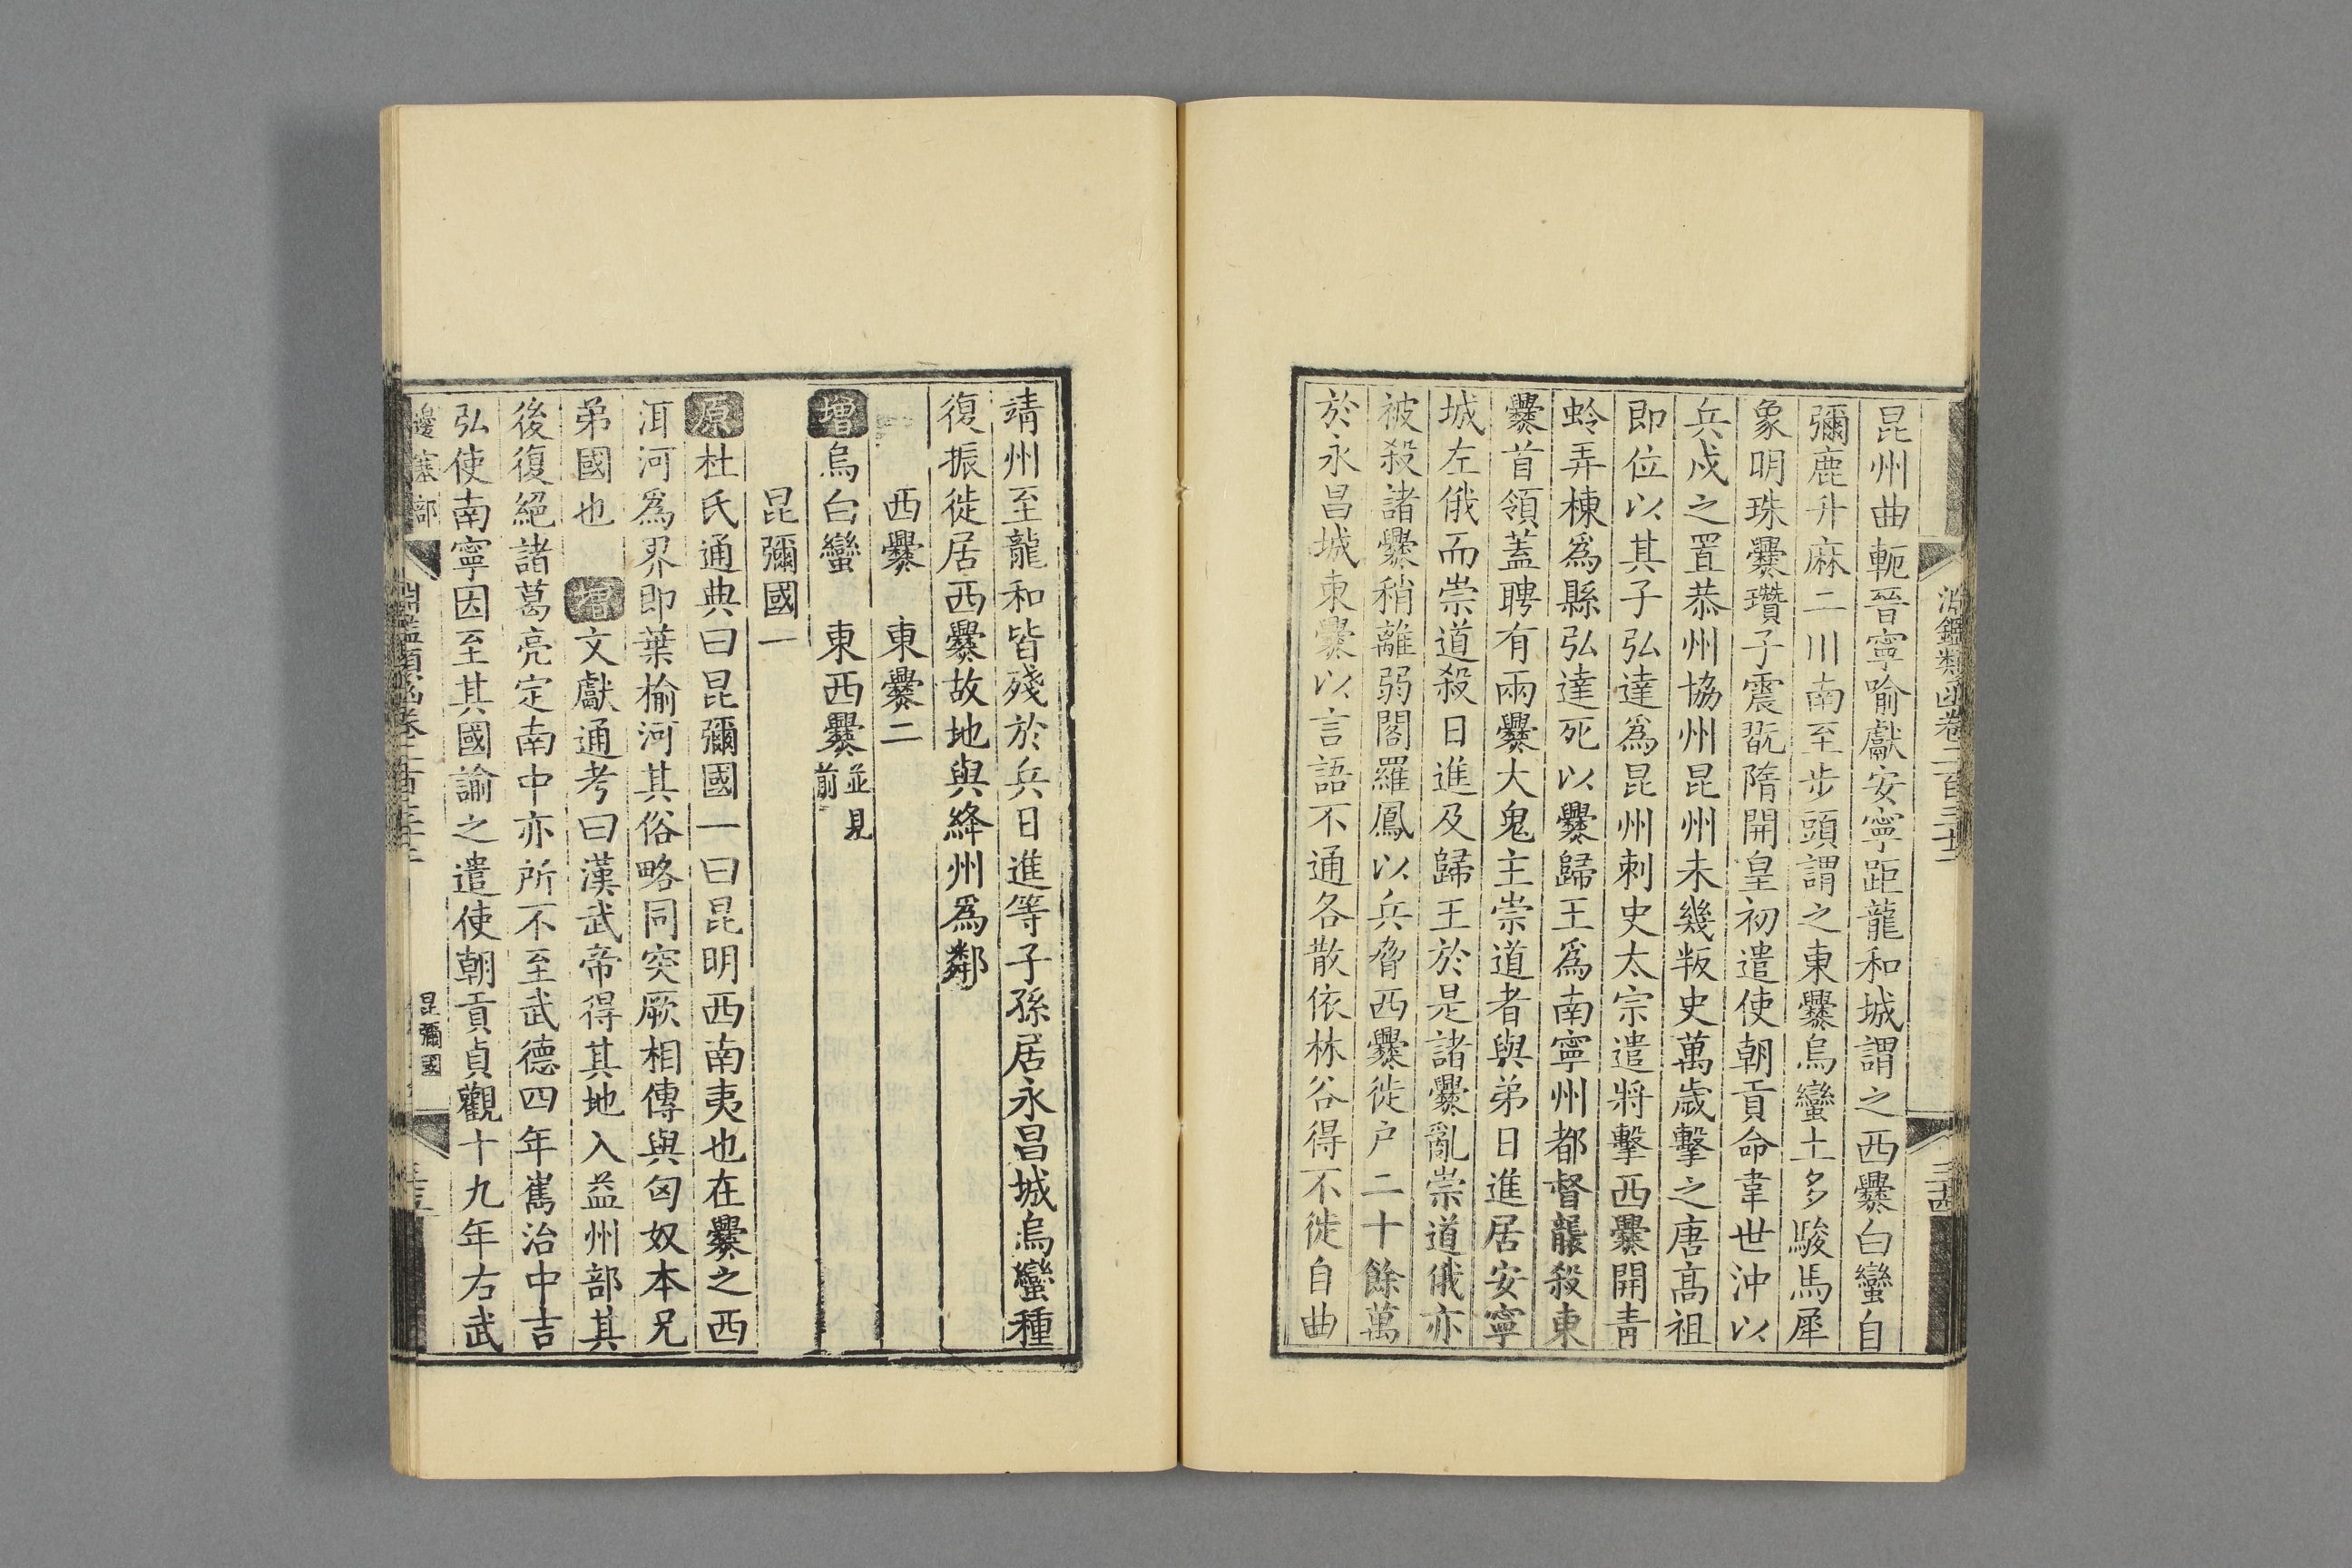 淵鑑類函卷二百三十二
三十四
昆州曲軛晉寧喻獻安寧距龍和城謂之西爨白蠻自
彌鹿升麻二川南至步頭謂之東爨烏蠻土多駿馬犀
象明珠爨瓚子震翫隋開皇初遣使朝貢命韋世沖以
兵戍之置恭州協州昆州未幾叛史萬歲擊之唐高祖
即位以其子弘達爲昆州刺史太宗遣將擊西爨開青
蛉弄棟爲縣弘達死以爨歸王爲南寧州都督襲殺東
爨首領蓋聘有兩爨大鬼主崇道者與弟日進居安寧
城左俄而崇道殺日進及歸王於是諸爨亂崇道俄亦
被殺諸爨稍離弱閣羅鳳以兵脅西爨徙户二十餘萬
於永昌城東爨以言語不通各散依林谷得不徙自曲
靖州至龍和皆殘於兵日進等子孫居永昌城烏蠻種
復振徙居西爨故地與絳州爲鄰
西爨　東爨二
增烏白蠻　東西爨並見前
昆彌國一
原杜氏通典曰昆彌國一曰昆明西南夷也在爨之西
洱河爲界即葉榆河其俗略同突厥相傳與匈奴本兄
弟國也　增文獻通考曰漢武帝得其地入益州部其
後復絕諸葛亮定南中亦所不至武德四年巂治中吉
弘使南寧因至其國諭之遣使朝貢貞觀十九年右武
邊塞部
淵鑑類函卷二百三十二
昆彌國